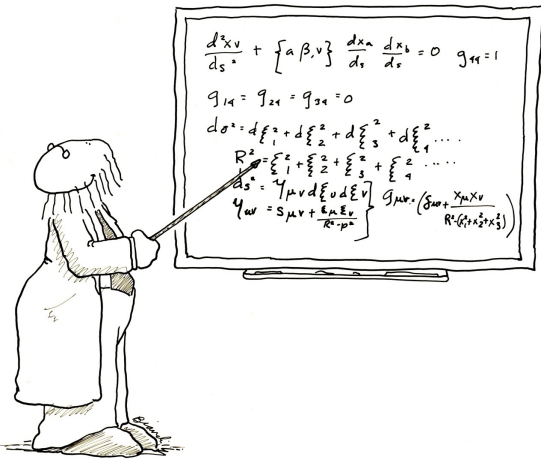 d²xν/ds² + {aβ,ν} dxa/ds dxb/ds = 0 g44 = 1
g14 = g24 = g34 = 0
dσ² = dξ1² + dξ2² + dξ3² + dξ4² ....
R² = ξ1² + ξ2² + ξ3² + ξ4² .....
ds² = γμν dξυ dξν
γμν = Sμν + ξμξν/R²-p² } gμν = (δμν + xμxν/R²-(x1²+x2²+x3²))